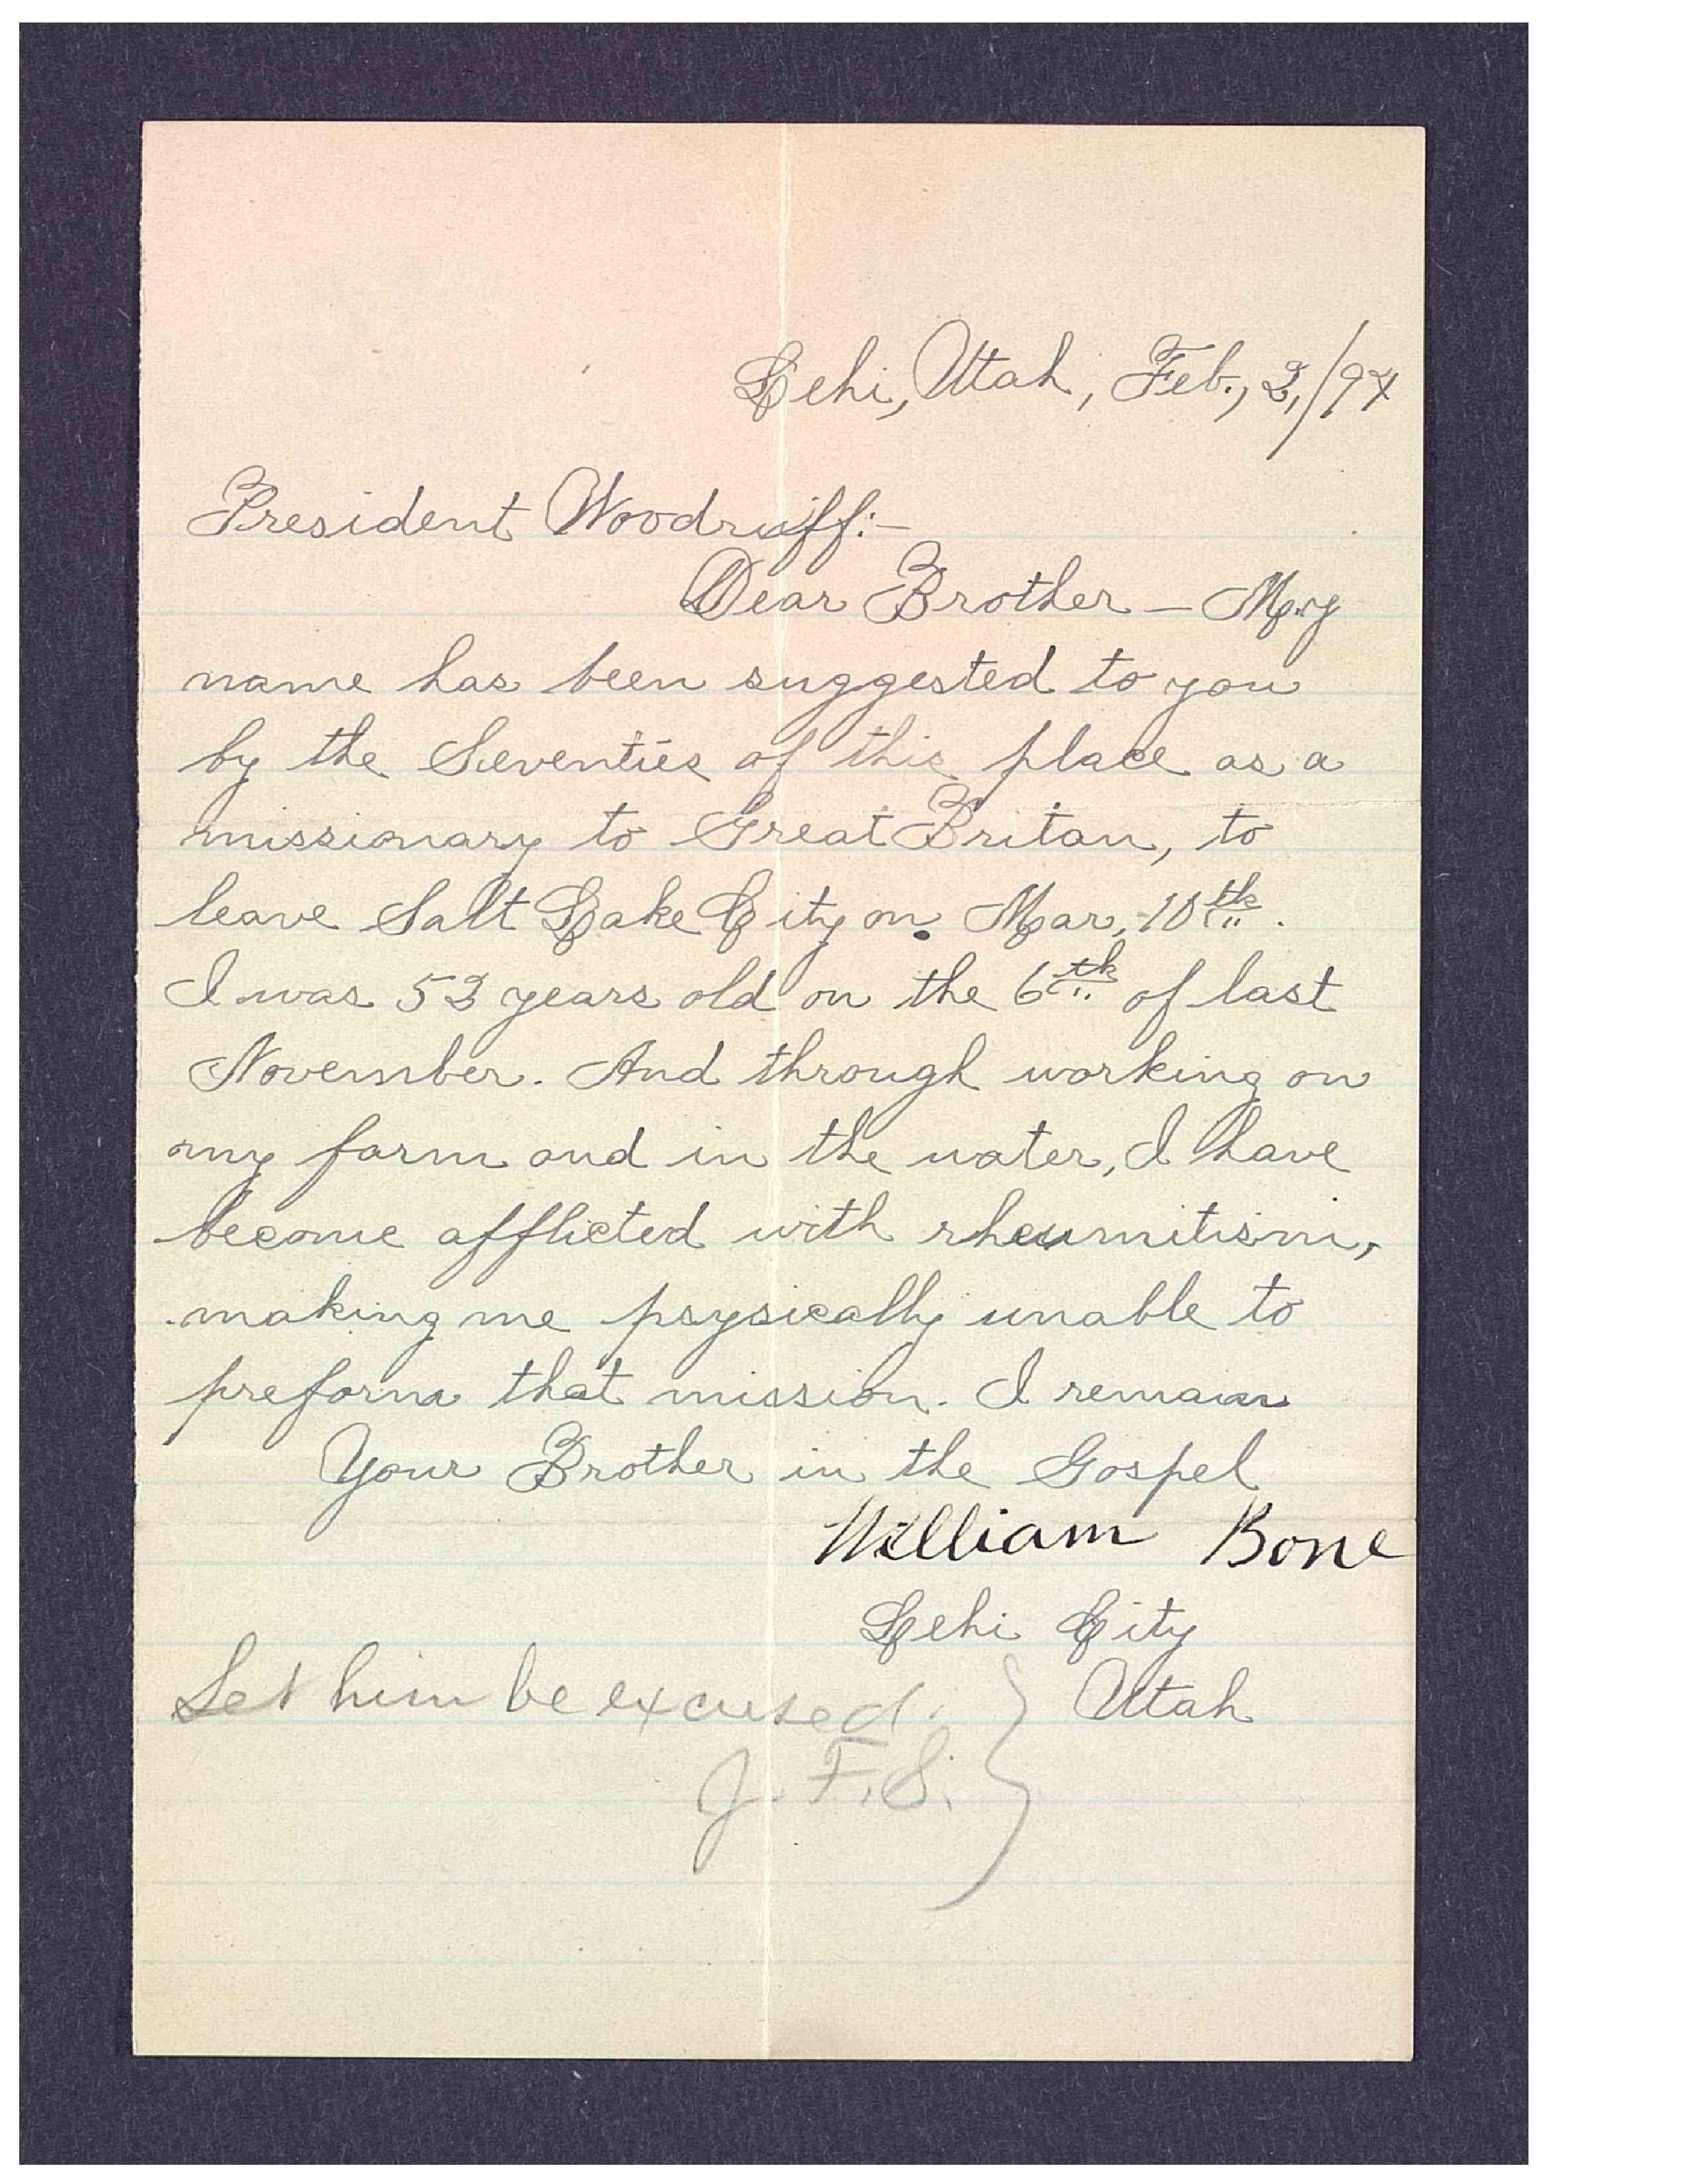 Lehi, Utah, Feb., 2,/94
President Woodruff:-
Dear Brother – My
name has been suggested to you
by the Seventies of this place as a
missionary to Great Britan, to
leave Salt Lake City on Mar, 10th.
I was 53 years old on the 6th of last
November. And through working on
my farm and in the water, I have
become afflicted with rheumitism,
making me psysically unable to
preform that mission. I remain
Your Brother in the Gospel
William Bone
Lehi City
Utah
Let him be excused.
J. F. S.